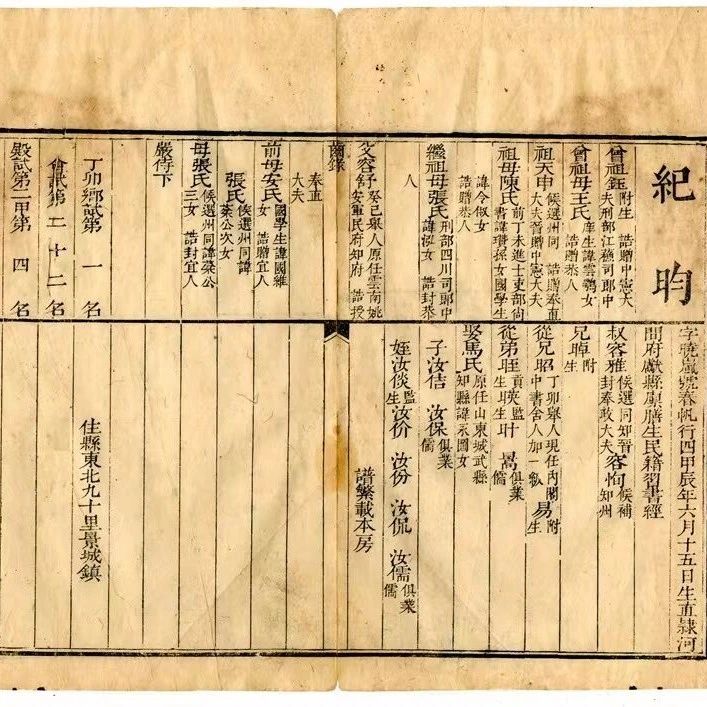 紀昀
字曉嵐號春帆行四甲辰年六月十五日生直隸河
間府獻縣廩膳生民籍習書經
曾祖鈺 附生 誥贈中憲大
夫刑部江蘇司郎中
曾祖母王氏 庠生諱雲鶚女
誥贈恭人
祖天申 候選州同 誥贈奉直
大夫晉贈中憲大夫
祖母陳氏 前丁未進士吏部尚
書諱瓚孫女國學生
諱令俶女
誥贈恭人
繼祖母張氏 刑部四川司郎中
諱泓女 誥封恭
人
父容舒 癸巳舉人原任雲南姚
安軍民府知府 誥授
奉直
大夫
前母安氏 國學生諱國維
女 誥贈宜人
張氏 候選州同諱
棻公次女
母張氏 候選州同諱棻公
三女 誥封宜人
嚴侍下
叔容雅 候選同知晉
封奉政大夫
容恂 候補
知州
兄晫 附
生
從兄昭 丁卯舉人現任內閣
中書舍人加一級
易 附
生
從弟眰 貢生
旲 監生
旪 暠 俱業
儒
娶馬氏 原任山東城武縣
知縣諱永圖女
子汝佶 汝保 俱業
儒
姪汝倓 監
生
汝价 汝份 汝侃 汝儒 俱業
儒
譜繁載本房
丁卯鄉試第一名
會試第二十二名
殿試第二甲第四名
住縣東北九十里景城鎮